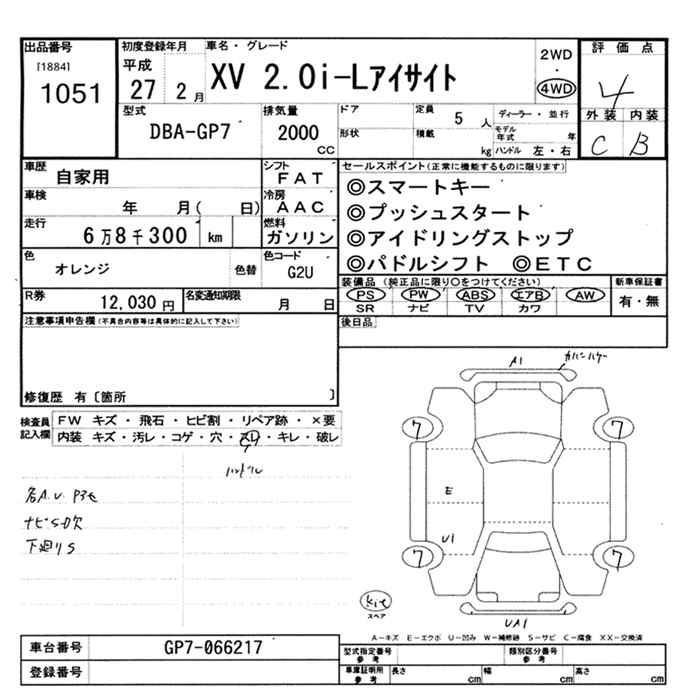 出品番号
[1884]
1051
初度登録年月
平成
27 2 月
車名・グレード
XV 2.0i-Lアイサイト
2WD
・
4WD
評価点
4
外装 内装
C B
型式
DBA-GP7
排気量
2000
CC
ドア
形状
定員 5 人
積載 kg
ディーラー・並行
モデル年式 年
ハンドル 左・右
車歴
自家用
車検 年 月( 日)
走行
6万8千300 km
シフト
FAT
冷房
AAC
燃料
ガソリン
色
オレンジ
色替
色コード
G2U
R券
12,030 円
名変通知期限
月 日
セールスポイント(正常に機能するものに限ります)
◎スマートキー
◎プッシュスタート
◎アイドリングストップ
◎パドルシフト ◎ETC
装備品 (純正品に限り○をつけてください)
PS PW ABS エアB AW
SR ナビ TV カワ
新車保証書
有・無
後日品
注意事項申告欄(不具合内容等は具体的に記入して下さい)
修復歴 有〔箇所 〕
検査員
記入欄
FW キズ・飛石・ヒビ割・リペア跡・×要
内装 キズ・汚レ・コゲ・穴・スレ・キレ・破レ
ハンドル
各A.U. P3も
ナビSD欠
下廻りS
A1
7
7
E
U1
7
7
UA1
スペア
A－キズ E－エクボ U－凹み W－補修跡 S－サビ C－腐食 XX－交換済
車台番号
GP7-066217
登録番号
型式指定番号
参考
類別区分番号
参考
車庫証明用
参考
長さ cm
幅 cm
高さ cm